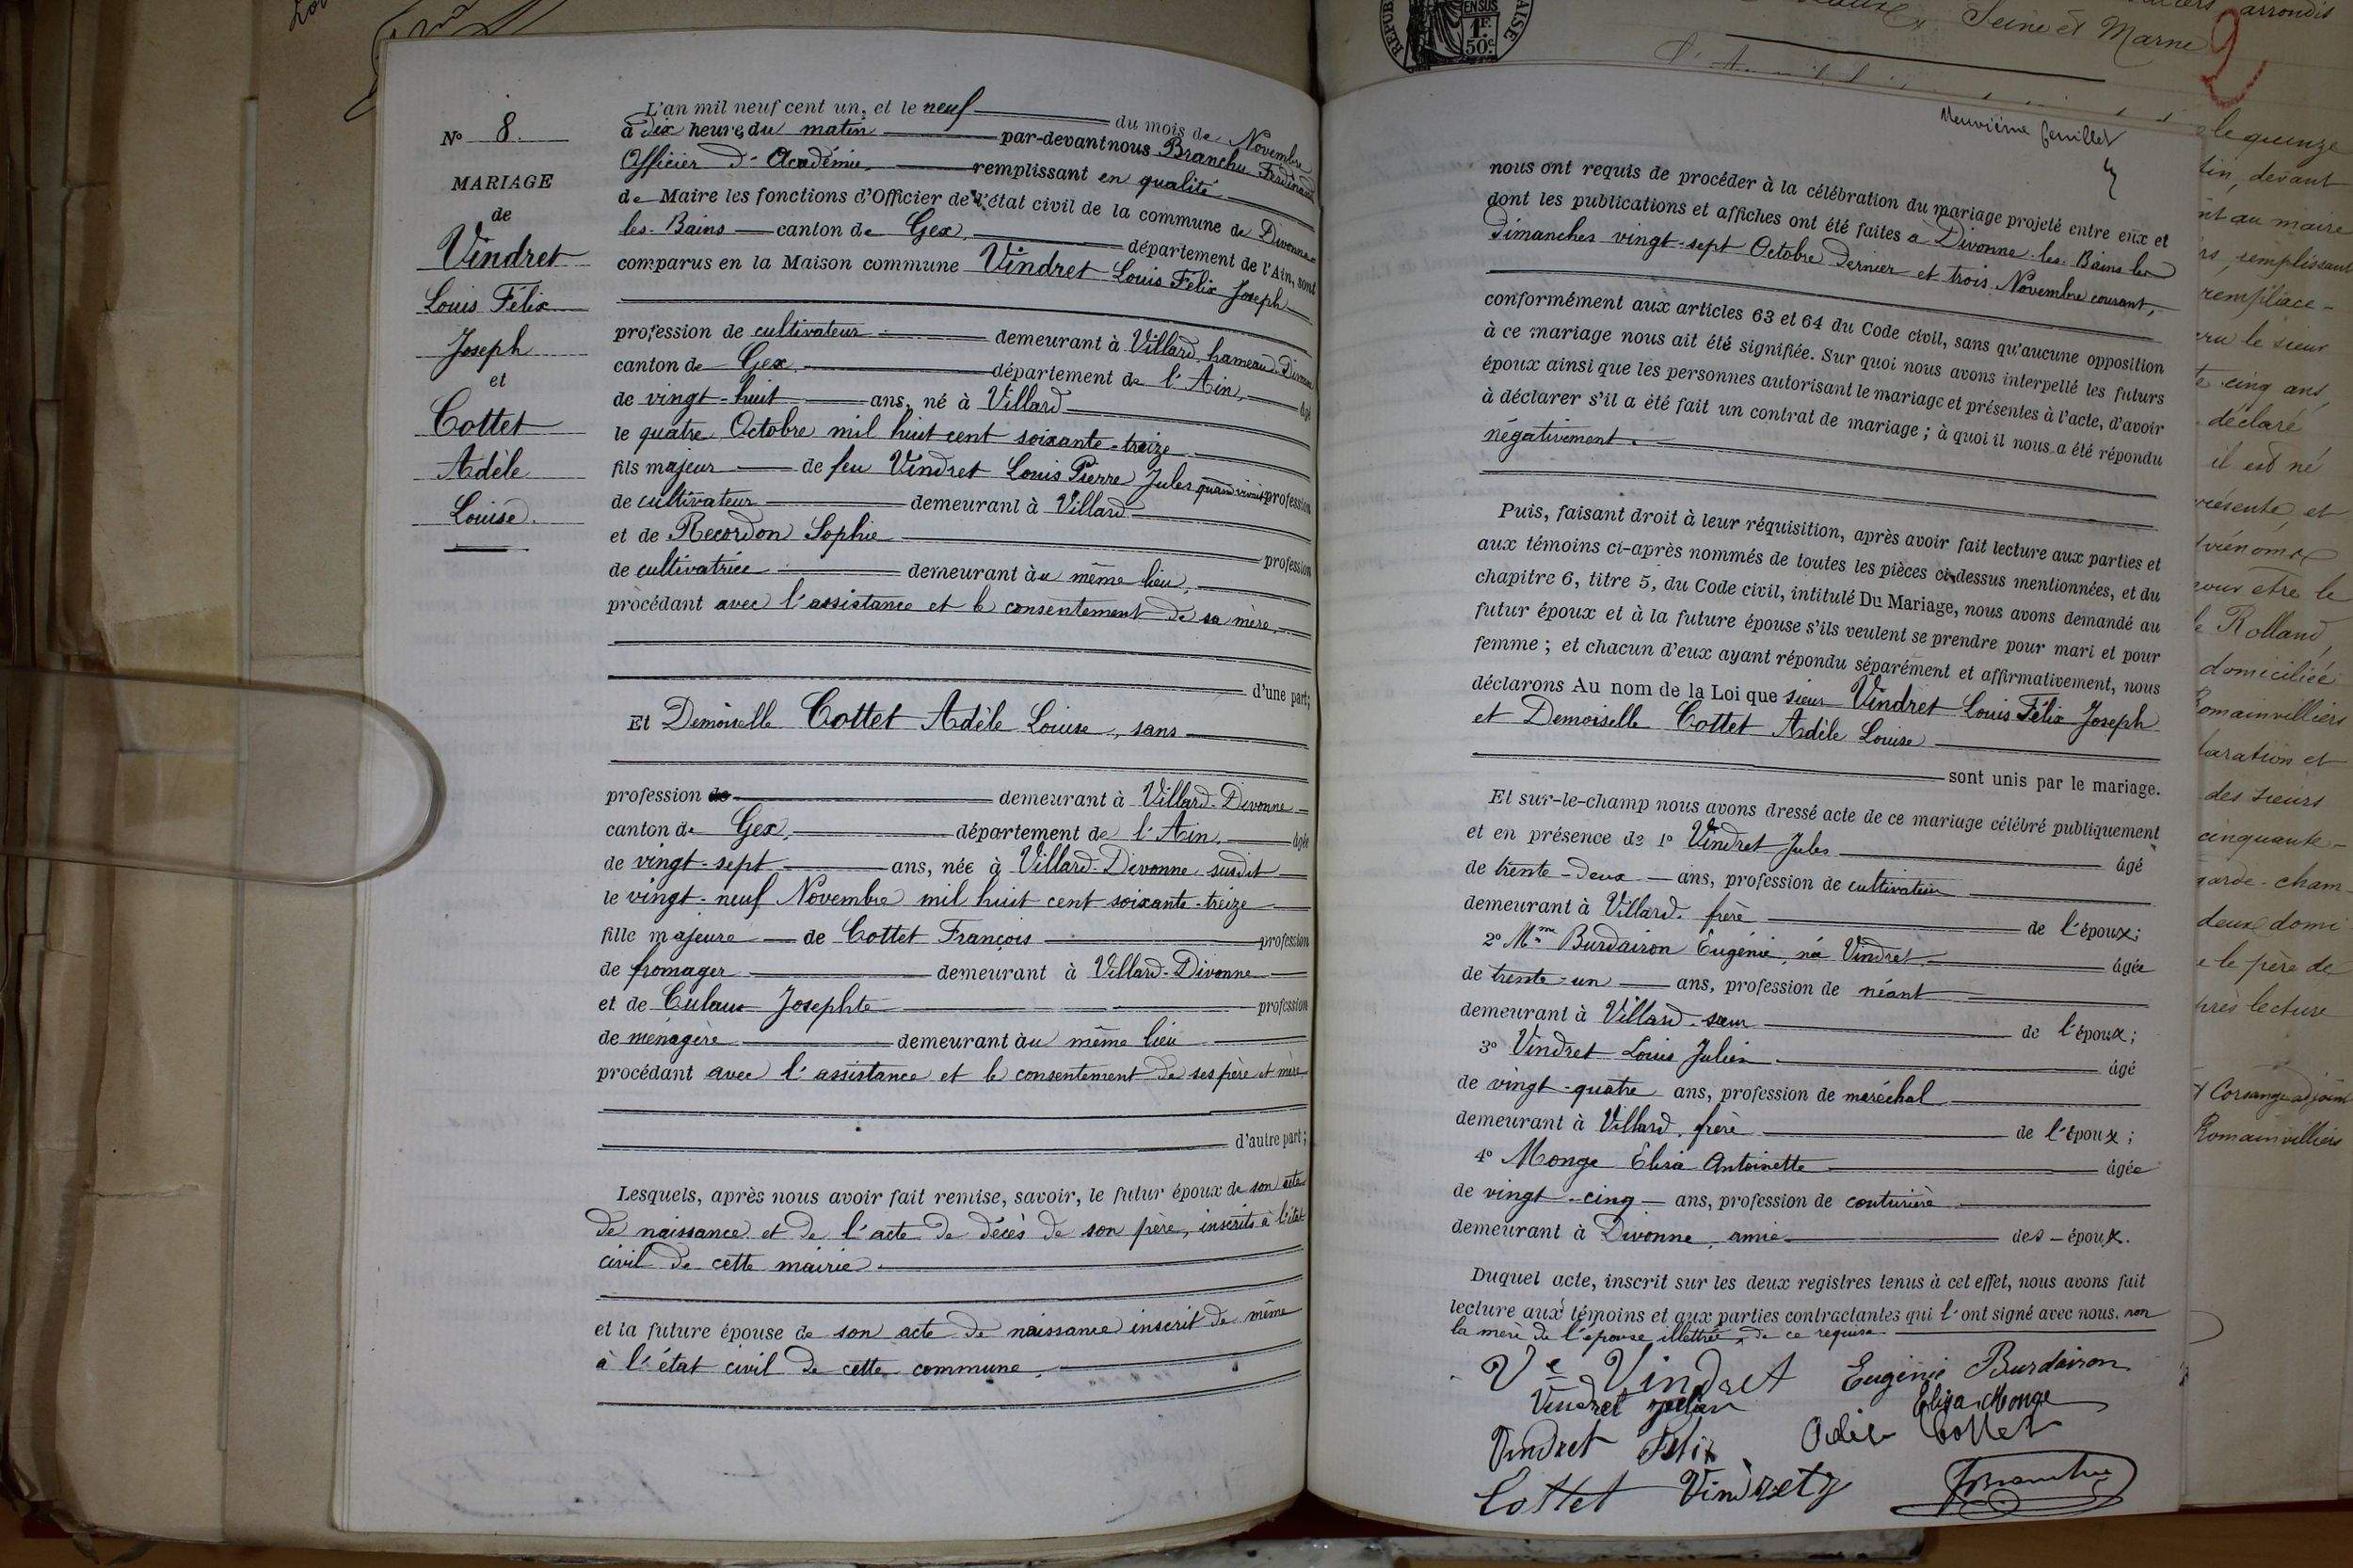 N° 8.
MARIAGE
de
Vindret
Louis Félix
Joseph
et
Cottet
Adèle
Louise.
L'an mil neuf cent un, et le neuf du mois de Novembre
à dix heures du matin par-devant nous Branchu Ferdinand
Officier d'Académie, remplissant en qualité
de Maire les fonctions d'Officier de l'état civil de la commune de Divonne-
les-Bains canton de Gex, département de l'Ain, sont
comparus en la Maison commune Vindret Louis Félix Joseph
profession de cultivateur demeurant à Villard hameau Divonne
canton de Gex, département de l'Ain, âgé
de vingt-huit ans, né à Villard
le quatre Octobre mil huit cent soixante-treize
fils majeur de feu Vindret Louis Pierre Jules quand vivait profession
de cultivateur demeurant à Villard
et de Recordon Sophie profession
de cultivatrice demeurant àu même lieu,
procédant avec l'assistance et le consentement de sa mère.
d'une part;
Et Demoiselle Cottet Adèle Louise, sans
profession de demeurant à Villard-Divonne
canton de Gex, département de l'Ain, âgée
de vingt-sept ans, née à Villard-Divonne susdit
le vingt-neuf Novembre mil huit cent soixante-treize
fille majeure de Cottet François profession
de fromager demeurant à Villard-Divonne
et de Culaux Josephte profession
de ménagère demeurant àu même lieu
procédant avec l'assistance et le consentement de ses père et mère
d'autre part;
Lesquels, après nous avoir fait remise, savoir, le futur époux de son acte
de naissance et de l'acte de décès de son père, inscrits à l'état
civil de cette mairie.
et la future épouse de son acte de naissance inscrit de même
à l'état civil de cette commune.
REPUB
1F.
50c.
AISE
Neuvième feuillet
nous ont requis de procéder à la célébration du mariage projeté entre eux et
dont les publications et affiches ont été faites à Divonne-les-Bains les
Dimanches vingt-sept Octobre dernier et trois Novembre courant,
conformément aux articles 63 et 64 du Code civil, sans qu'aucune opposition
à ce mariage nous ait été signifiée. Sur quoi nous avons interpellé les futurs
époux ainsi que les personnes autorisant le mariage et présentes à l'acte, d'avoir
à déclarer s'il a été fait un contrat de mariage ; à quoi il nous a été répondu
négativement.
Puis, faisant droit à leur réquisition, après avoir fait lecture aux parties et
aux témoins ci-après nommés de toutes les pièces ci-dessus mentionnées, et du
chapitre 6, titre 5, du Code civil, intitulé Du Mariage, nous avons demandé au
futur époux et à la future épouse s'ils veulent se prendre pour mari et pour
femme ; et chacun d'eux ayant répondu séparément et affirmativement, nous
déclarons Au nom de la Loi que sieur Vindret Louis Félix Joseph
et Demoiselle Cottet Adèle Louise
sont unis par le mariage.
Et sur-le-champ nous avons dressé acte de ce mariage célébré publiquement
et en présence de 1° Vindret Jules âgé
de trente-deux ans, profession de cultivateur
demeurant à Villard. frère de l'époux;
2° Mme Burdairon Eugénie, née Vindret âgée
de trente-un ans, profession de néant
demeurant à Villard. sœur de l'époux;
3° Vindret Louis Julien âgé
de vingt-quatre ans, profession de maréchal
demeurant à Villard, frère de l'époux;
4° Monge Elisa Antoinette âgée
de vingt-cinq ans, profession de couturière
demeurant à Divonne, amie des époux.
Duquel acte, inscrit sur les deux registres tenus à cet effet, nous avons fait
lecture aux témoins et aux parties contractantes qui l'ont signé avec nous, non
la mère de l'épouse illettrée, de ce requise.
Ve Vindret Eugénie Burdairon
Vindret Julien Elisa Monge
Vindret Félix Adèle Cottet
Cottet Vindret FBranchu
arrondis
Seine et Marne
2
le quinze
tin, devant
nt au maire
rs, remplissant
remplace-
ru le sieur
te cinq ans,
déclaré
il est né
présente, et
prénoms
pour être le
e Rolland,
domiciliée
Romainvilliers
laration et
des sieurs
cinquante-
garde-cham-
deux domi
e le père de
près lecture
Corsange adjoint
Romainvilliers